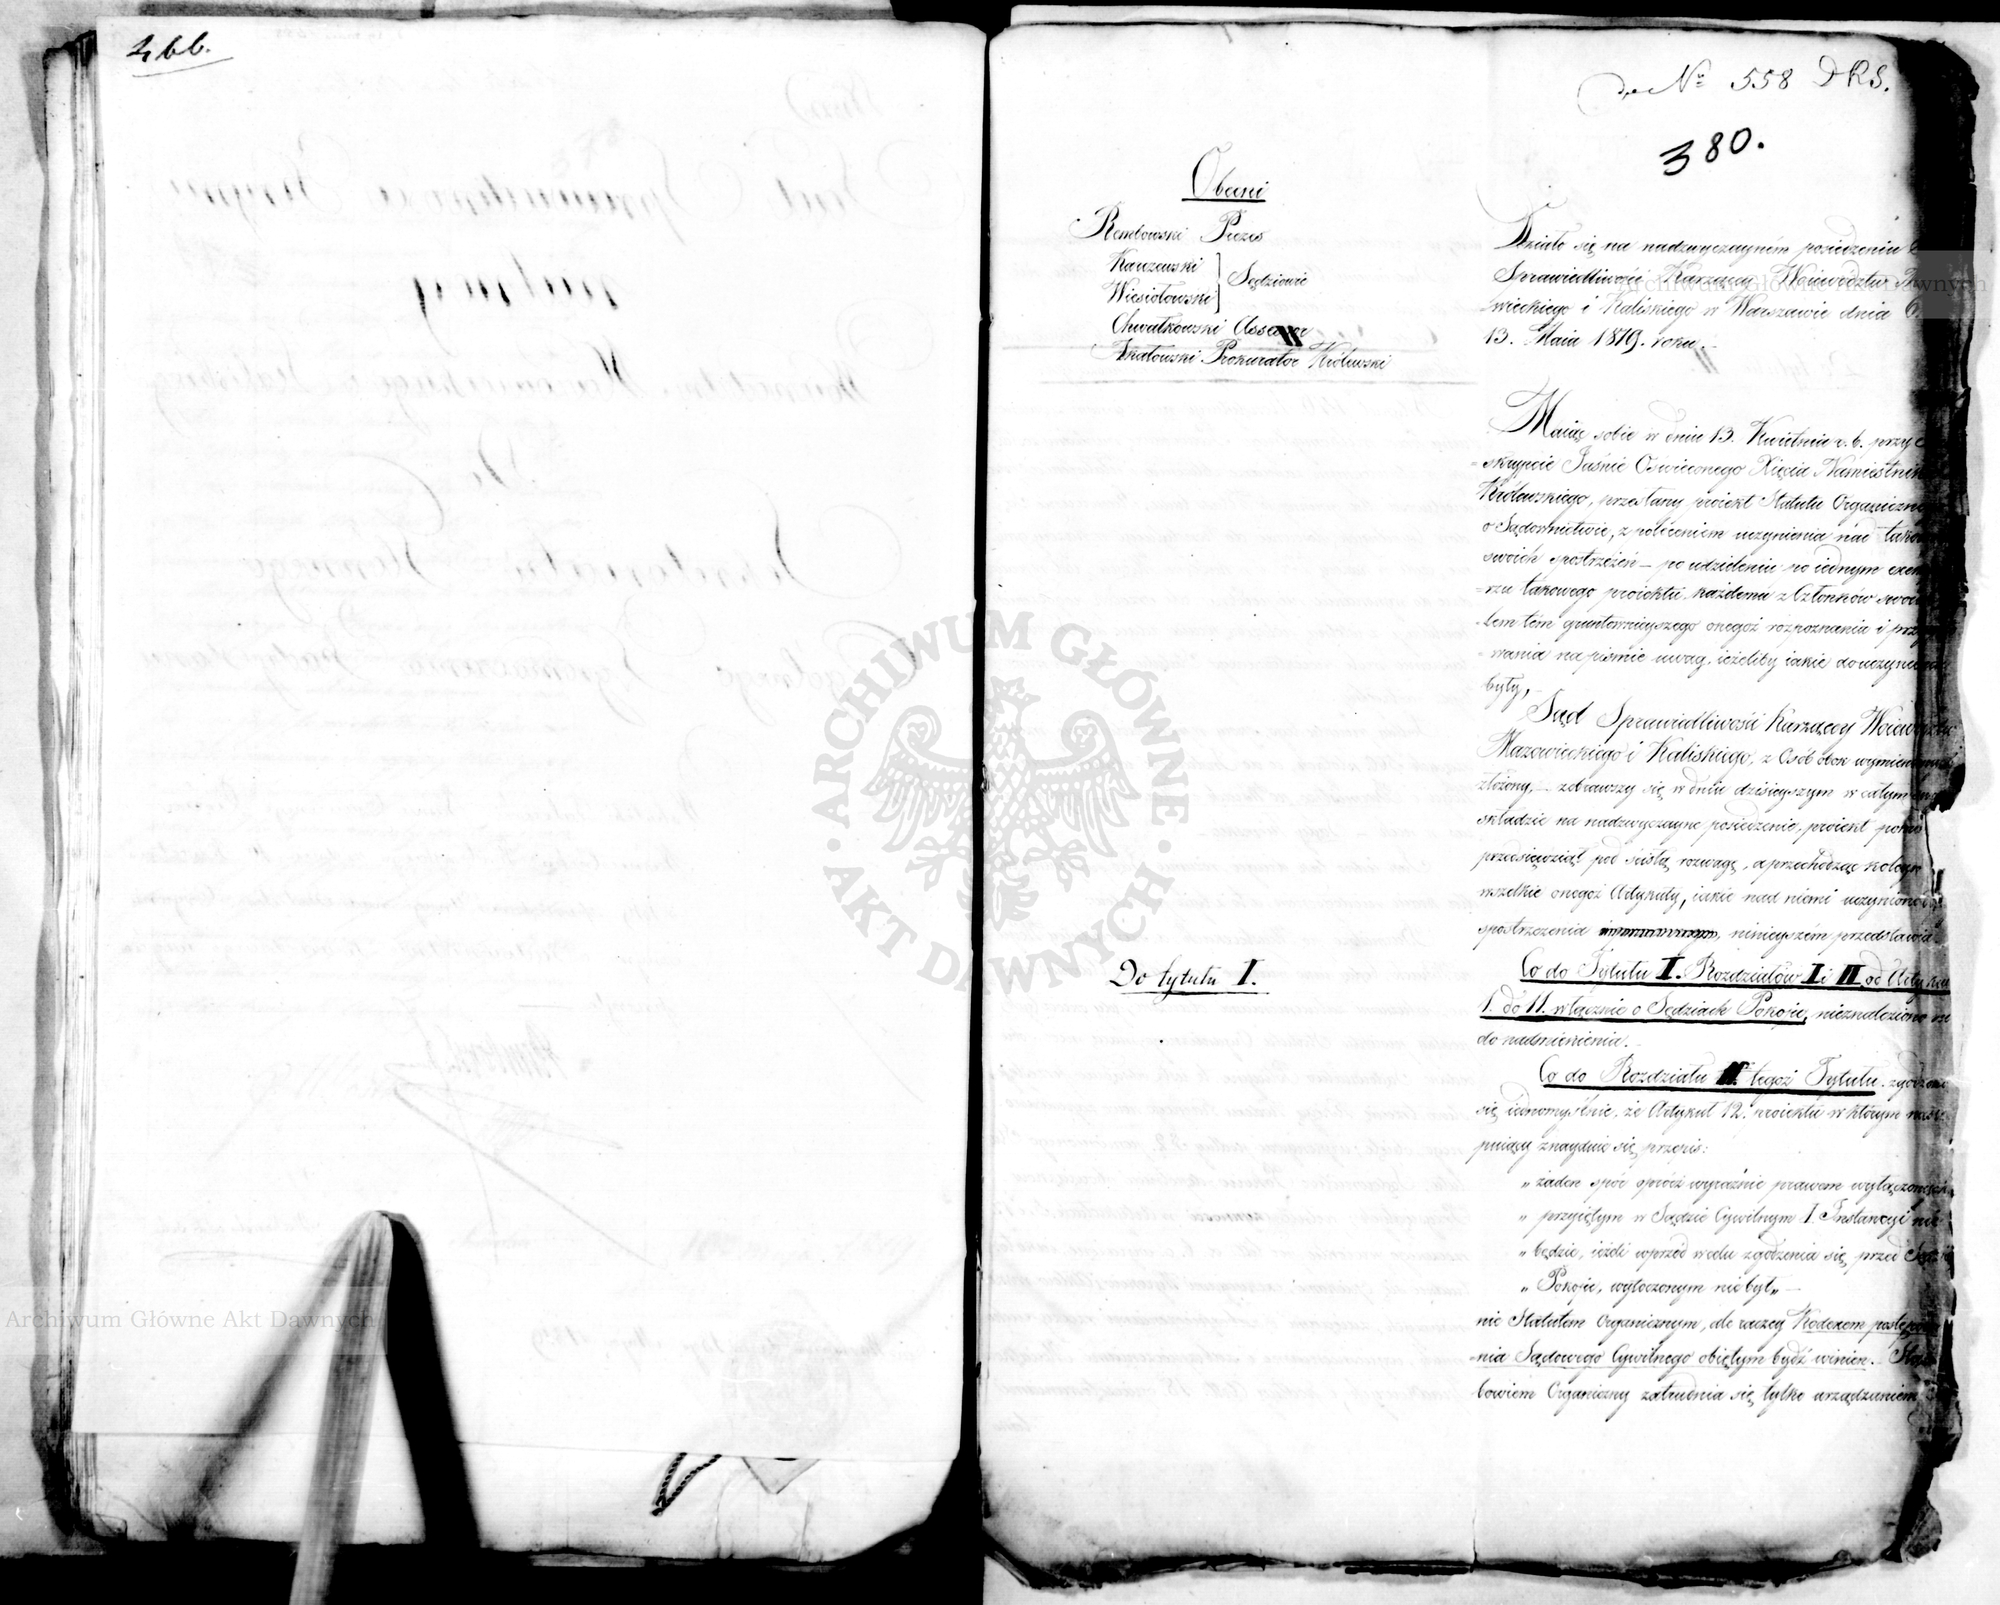 466.
do Nº 558 DKS.
380.
Obecni
Rembowski Prezes
Karczewski
Wiesiołowski
Sędziowie
Chwałkowski Assessor
Skałowski Prokurator Królewski
Działo się na nadzwyczayném posiedzeniu
Sprawiedliwości Karzącey Woiewództw
wieckiego i Kaliskiego w Warszawie dnia
13. Maia 1819. roku.
Maiąc sobie w dniu 13. Kwietnia r. b. przy
skrypcie Jaśnie Oświeconego Xięcia Namiestnik
Królewskiego, przesłany proiekt Statutu Organiczn
o Sądownictwie, z poleceniem uczynienia nad
swoich spostrzeżeń – po udzieleniu po iednym exem
rzu takowego proiektu, każdemu z Członków swo
lem tém gruntownieyszego onegoż rozpoznania i
wania na piśmie uwag, ieżeliby iakie do uczynienia
były,
Sąd Sprawiedliwości Karzącey Woiewództw
Mazowieckiego i Kaliskiego, z Osób obok wymienionych
złożony, – zebrawszy się w dniu dzisieyszym w całym
składzie na nadzwyczayne posiedzenie, proiekt
przedsięwziął pod ścisłą rozwagę, a przechodząc koleyno
wszelkie onegoż Artykuły, iakie nad niemi uczyniono
spostrzeżenia, ninieyszém przedstawia
Do tytułu I.
Co do Tytułu I. Rozdziałów I i II od Artykułu
1. do 11. włącznie o Sędziach Pokoju, nieznaleziono nic
do nadmienienia.
Co do Rozdziału III tegoż Tytułu. zgodzono
się iednomyślnie, że Artykuł 12. proiektu w którym nastę
puiący znayduie się przepis:
„żaden spór oprócz wyraźnie prawem wyłączonych
„ przyiętym w Sądzie Cywilnym I. Instancyi nie
„ będzie, ieżeli wprzód w celu zgodzenia się przed Sędzią
„ Pokoju, wytoczonym nie był„ –
nie Statutem Organicznym, ale raczey Kodexem postępowa
nia Sądowego Cywilnego obiętym bydź winien. –
bowiem Organiczny zatrudnia się tylko urządzeniem
Archiwum Główne Akt Dawnych
Archiwum Główne Akt Dawnych
ARCHIWUM GŁÓWNE AKT DAWNYCH